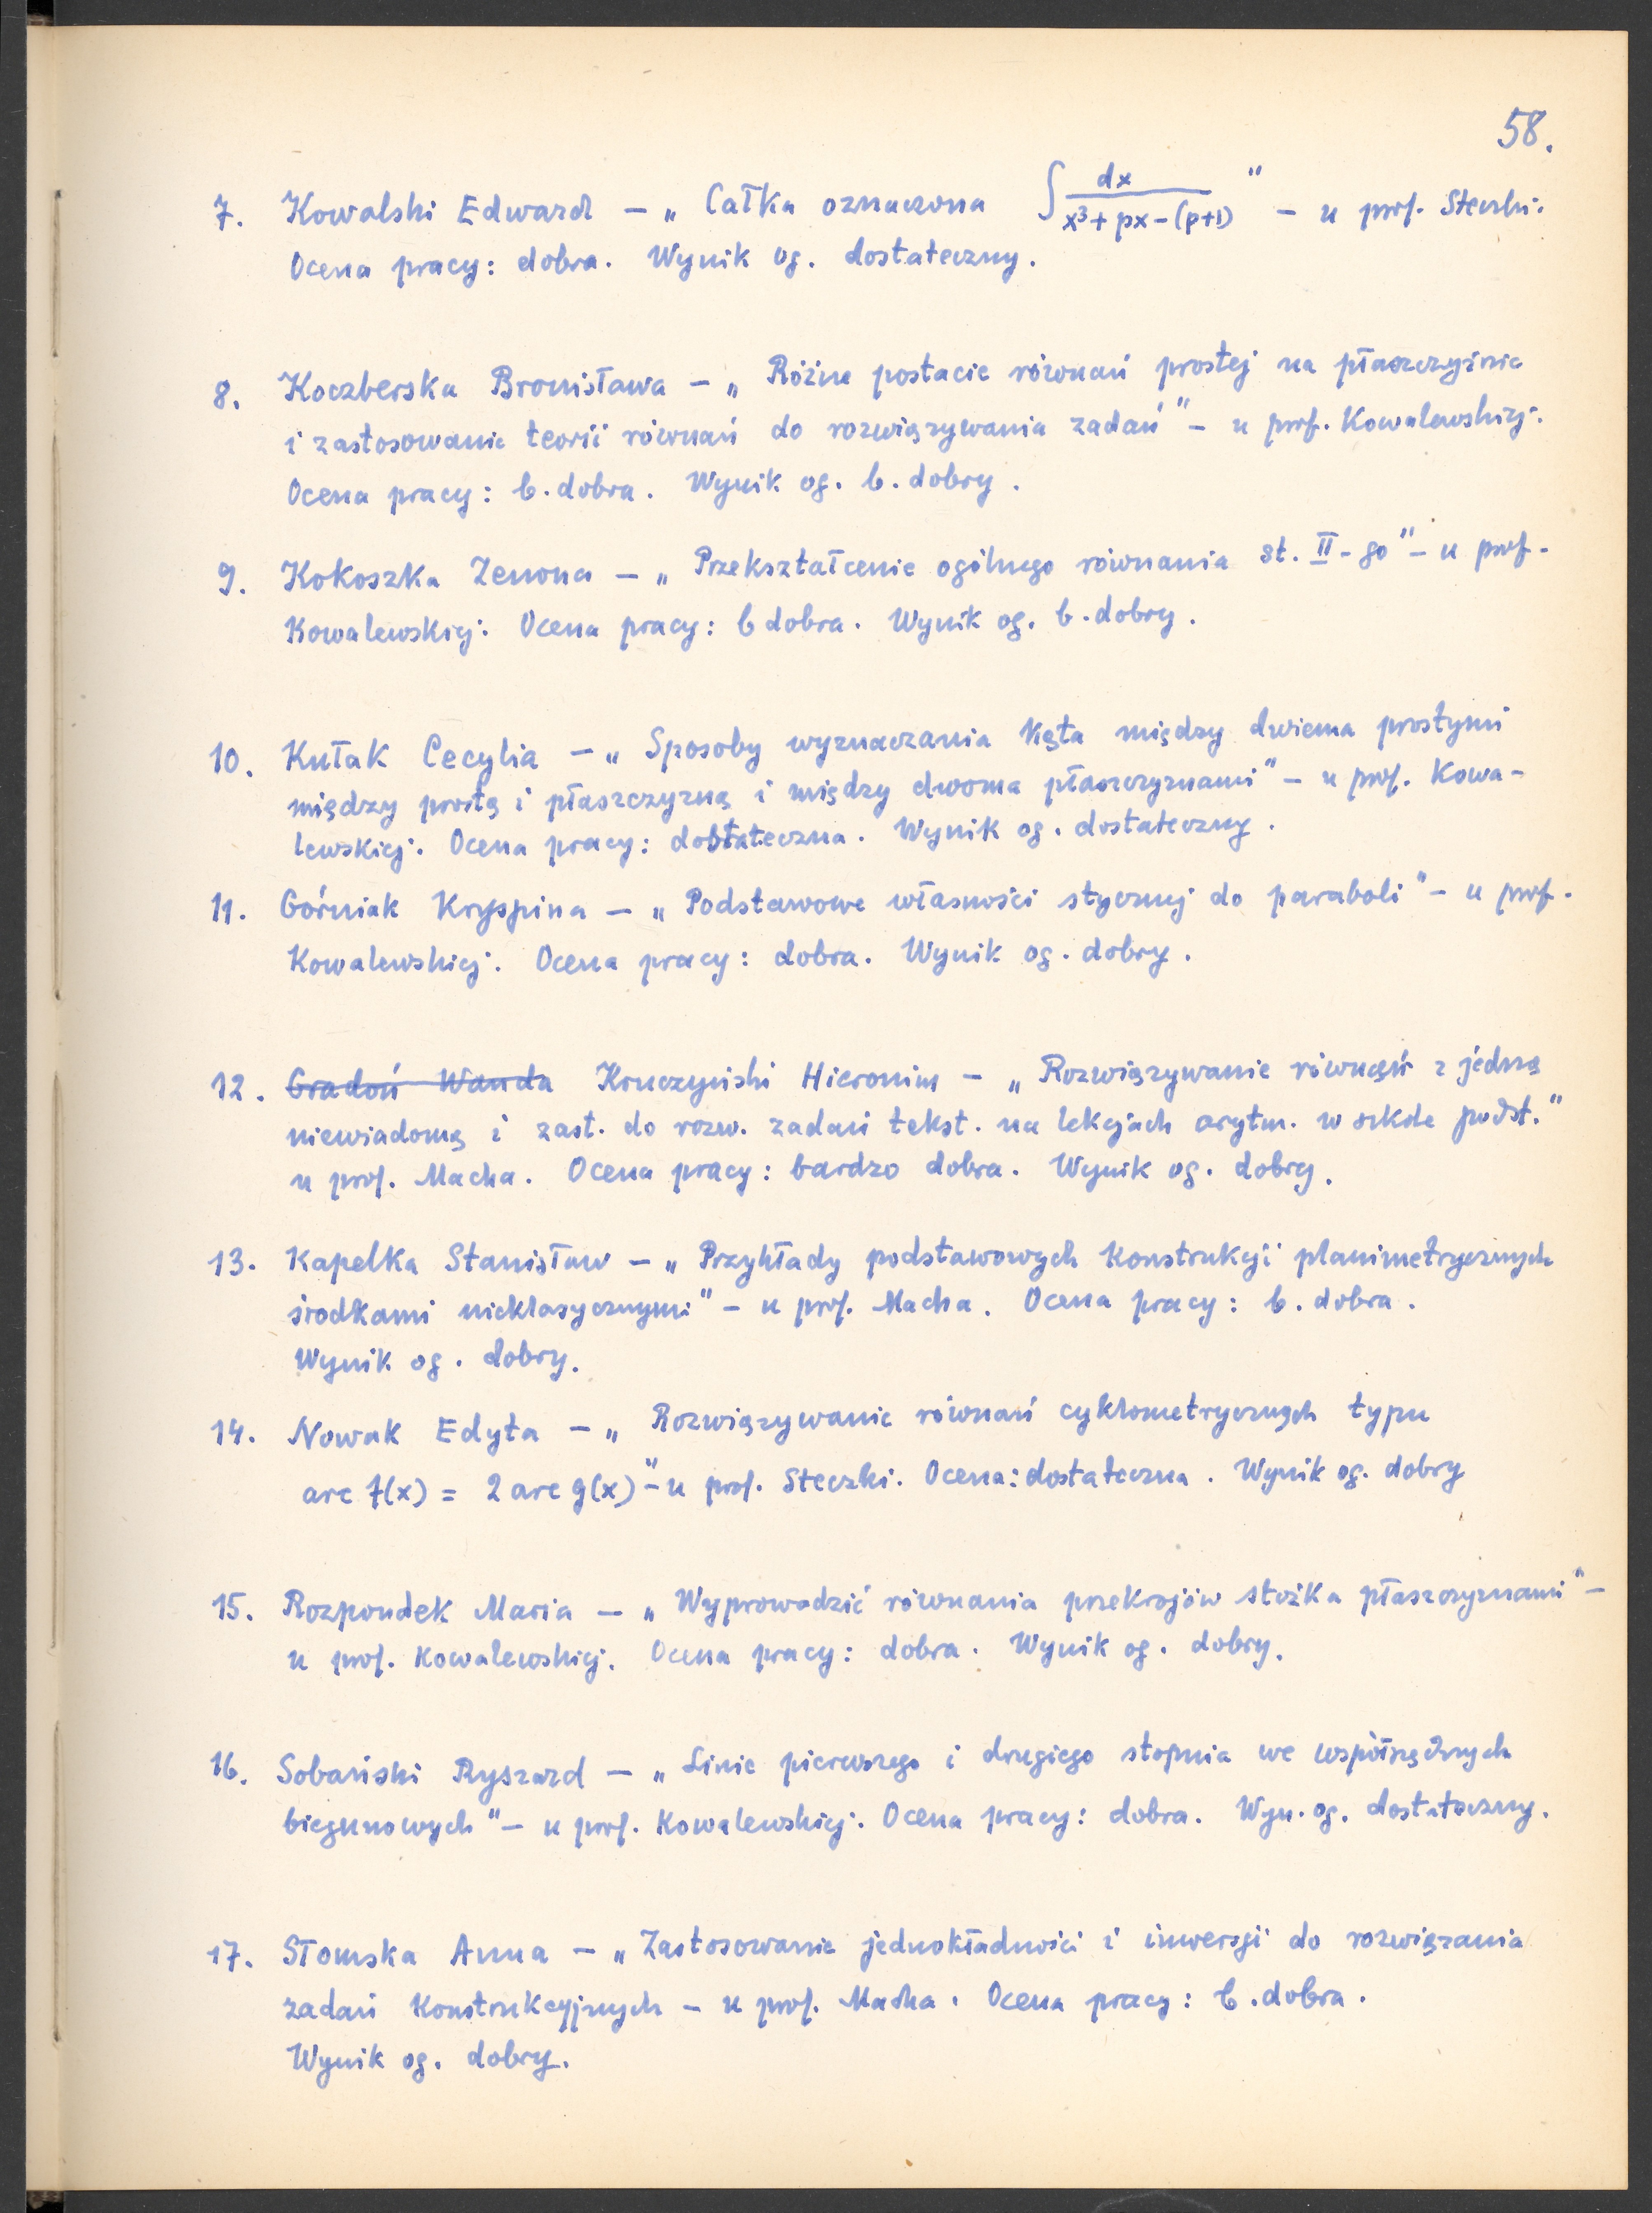 58.
7. Kowalski Edward – „Całka oznaczona ∫ dx / x³ + px – (p+1)" – u prof. Steczki.
Ocena pracy: dobra. Wynik og. dostateczny.
8. Koczberska Bronisława – „Różne postacie równań prostej na płaszczyźnie
i zastosowanie teorii równań do rozwiązywania zadań" – u prof. Kowalewskiej.
Ocena pracy: b. dobra. Wynik og. b. dobry.
9. Kokoszka Zenona – „Przekształcenie ogólnego równania st. II-go" – u prof.
Kowalewskiej. Ocena pracy: b dobra. Wynik og. b. dobry.
10. Kułak Cecylia – „Sposoby wyznaczania kąta między dwiema prostymi
między prostą i płaszczyzną i między dwoma płaszczyznami" – u prof. Kowa-
lewskiej. Ocena pracy: dostateczna. Wynik og. dostateczny.
11. Górniak Kryspina – „Podstawowe własności stycznej do paraboli" – u prof.
Kowalewskiej. Ocena pracy: dobra. Wynik og. dobry.
12. Gradoń Wanda Kruczyński Hieronim – „Rozwiązywanie równań z jedną
niewiadomą i zast. do rozw. zadań tekst. na lekcjach arytm. w szkole podst."
u prof. Macha. Ocena pracy: bardzo dobra. Wynik og. dobry.
13. Kapelka Stanisław – „Przykłady podstawowych konstrukcji planimetrycznych
środkami nieklasycznymi" – u prof. Macha. Ocena pracy: b. dobra.
Wynik og. dobry.
14. Nowak Edyta – „Rozwiązywanie równań cyklometrycznych typu
arc f(x) = 2 arc g(x)" – u prof. Steczki. Ocena: dostateczna. Wynik og. dobry
15. Rozpondek Maria – „Wyprowadzić równania przekrojów stożka płaszczyznami" –
u prof. Kowalewskiej. Ocena pracy: dobra. Wynik og. dobry.
16. Sobański Ryszard – „Linie pierwszego i drugiego stopnia we współrzędnych
biegunowych" – u prof. Kowalewskiej. Ocena pracy: dobra. Wyn. og. dostateczny.
17. Słomska Anna – „Zastosowanie jednokładności i inwersji do rozwiązania
zadań konstrukcyjnych – u prof. Macha. Ocena pracy: b. dobra.
Wynik og. dobry.